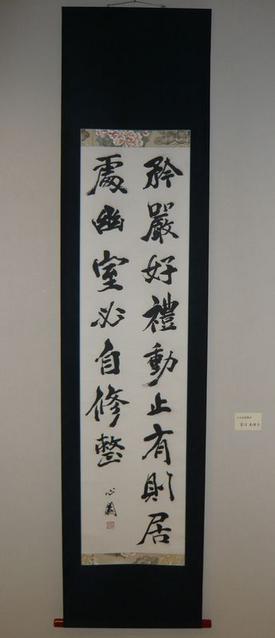 矜嚴好禮動止有則居
處幽室必自修整